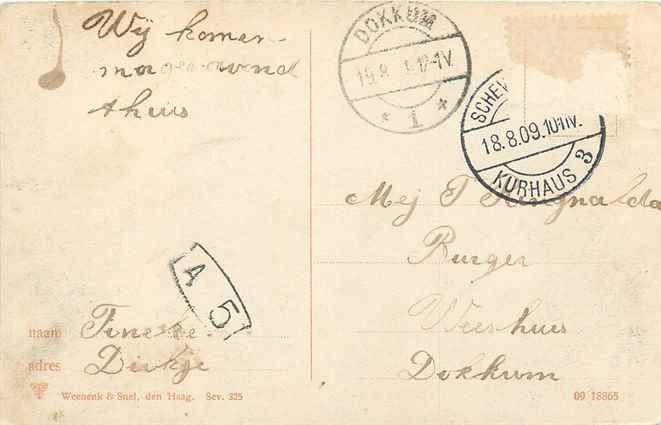 Wij komen
morgenavond
thuis
DOKKUM
19.8. 12-1V
* 1 *
SCHEV
18.8.09.10-11V.
KURHAUS 3
Mej T
Burger
Weeshuis
Dokkum
A 5
naam Fineke
adres Dirkje
Weenenk & Snel, den Haag. Sev. 325
09 18865